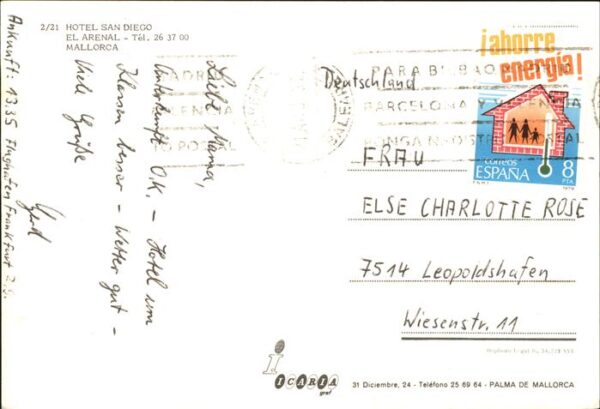 2/21 HOTEL SAN DIEGO
EL ARENAL - Tél. 26 37 00
MALLORCA
Liebe Mama,
Unterkunft O.K. – Hotel um
Klassen besser – Wetter gut –
Viele Grüße
Gerd
Ankunft: 13.35 Flughafen Frankfurt
¡ahorre
energía!
correos
ESPAÑA
8
PTA
PARA BILBAO
BARCELONA Y VALENCIA
PONGA Nº DISTRITO POSTAL
Deutschland
FRAU
ELSE CHARLOTTE ROSE
7514 Leopoldshafen
Wiesenstr. 11
ICARIA
graf
31 Diciembre, 24 - Teléfono 25 69 64 - PALMA DE MALLORCA